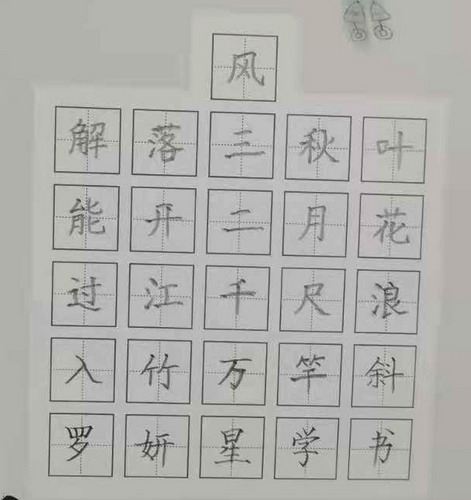 风
解落三秋叶
能开二月花
过江千尺浪
入竹万竿斜
罗妍星学书